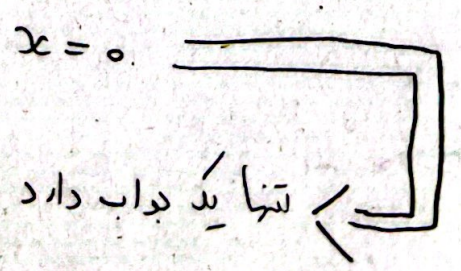 x = 0
تنها یک جواب دارد